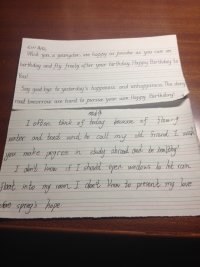 Wish you a youngster, are happy as powder as you can on
birthday and fly freely after your birthday. Happy Birthday to
You!
Say goodbye to yesterday's happiness and unhappiness. The
road tomorrow are hard to your own. Happy Birthday!
I often think of today because of
winter and send word to call my old friend. I wish
you make pogress in study abroad and be healthy!
I don't know if I should open windows to let rain
float into my room. I don't know to present my love
spring's hope.